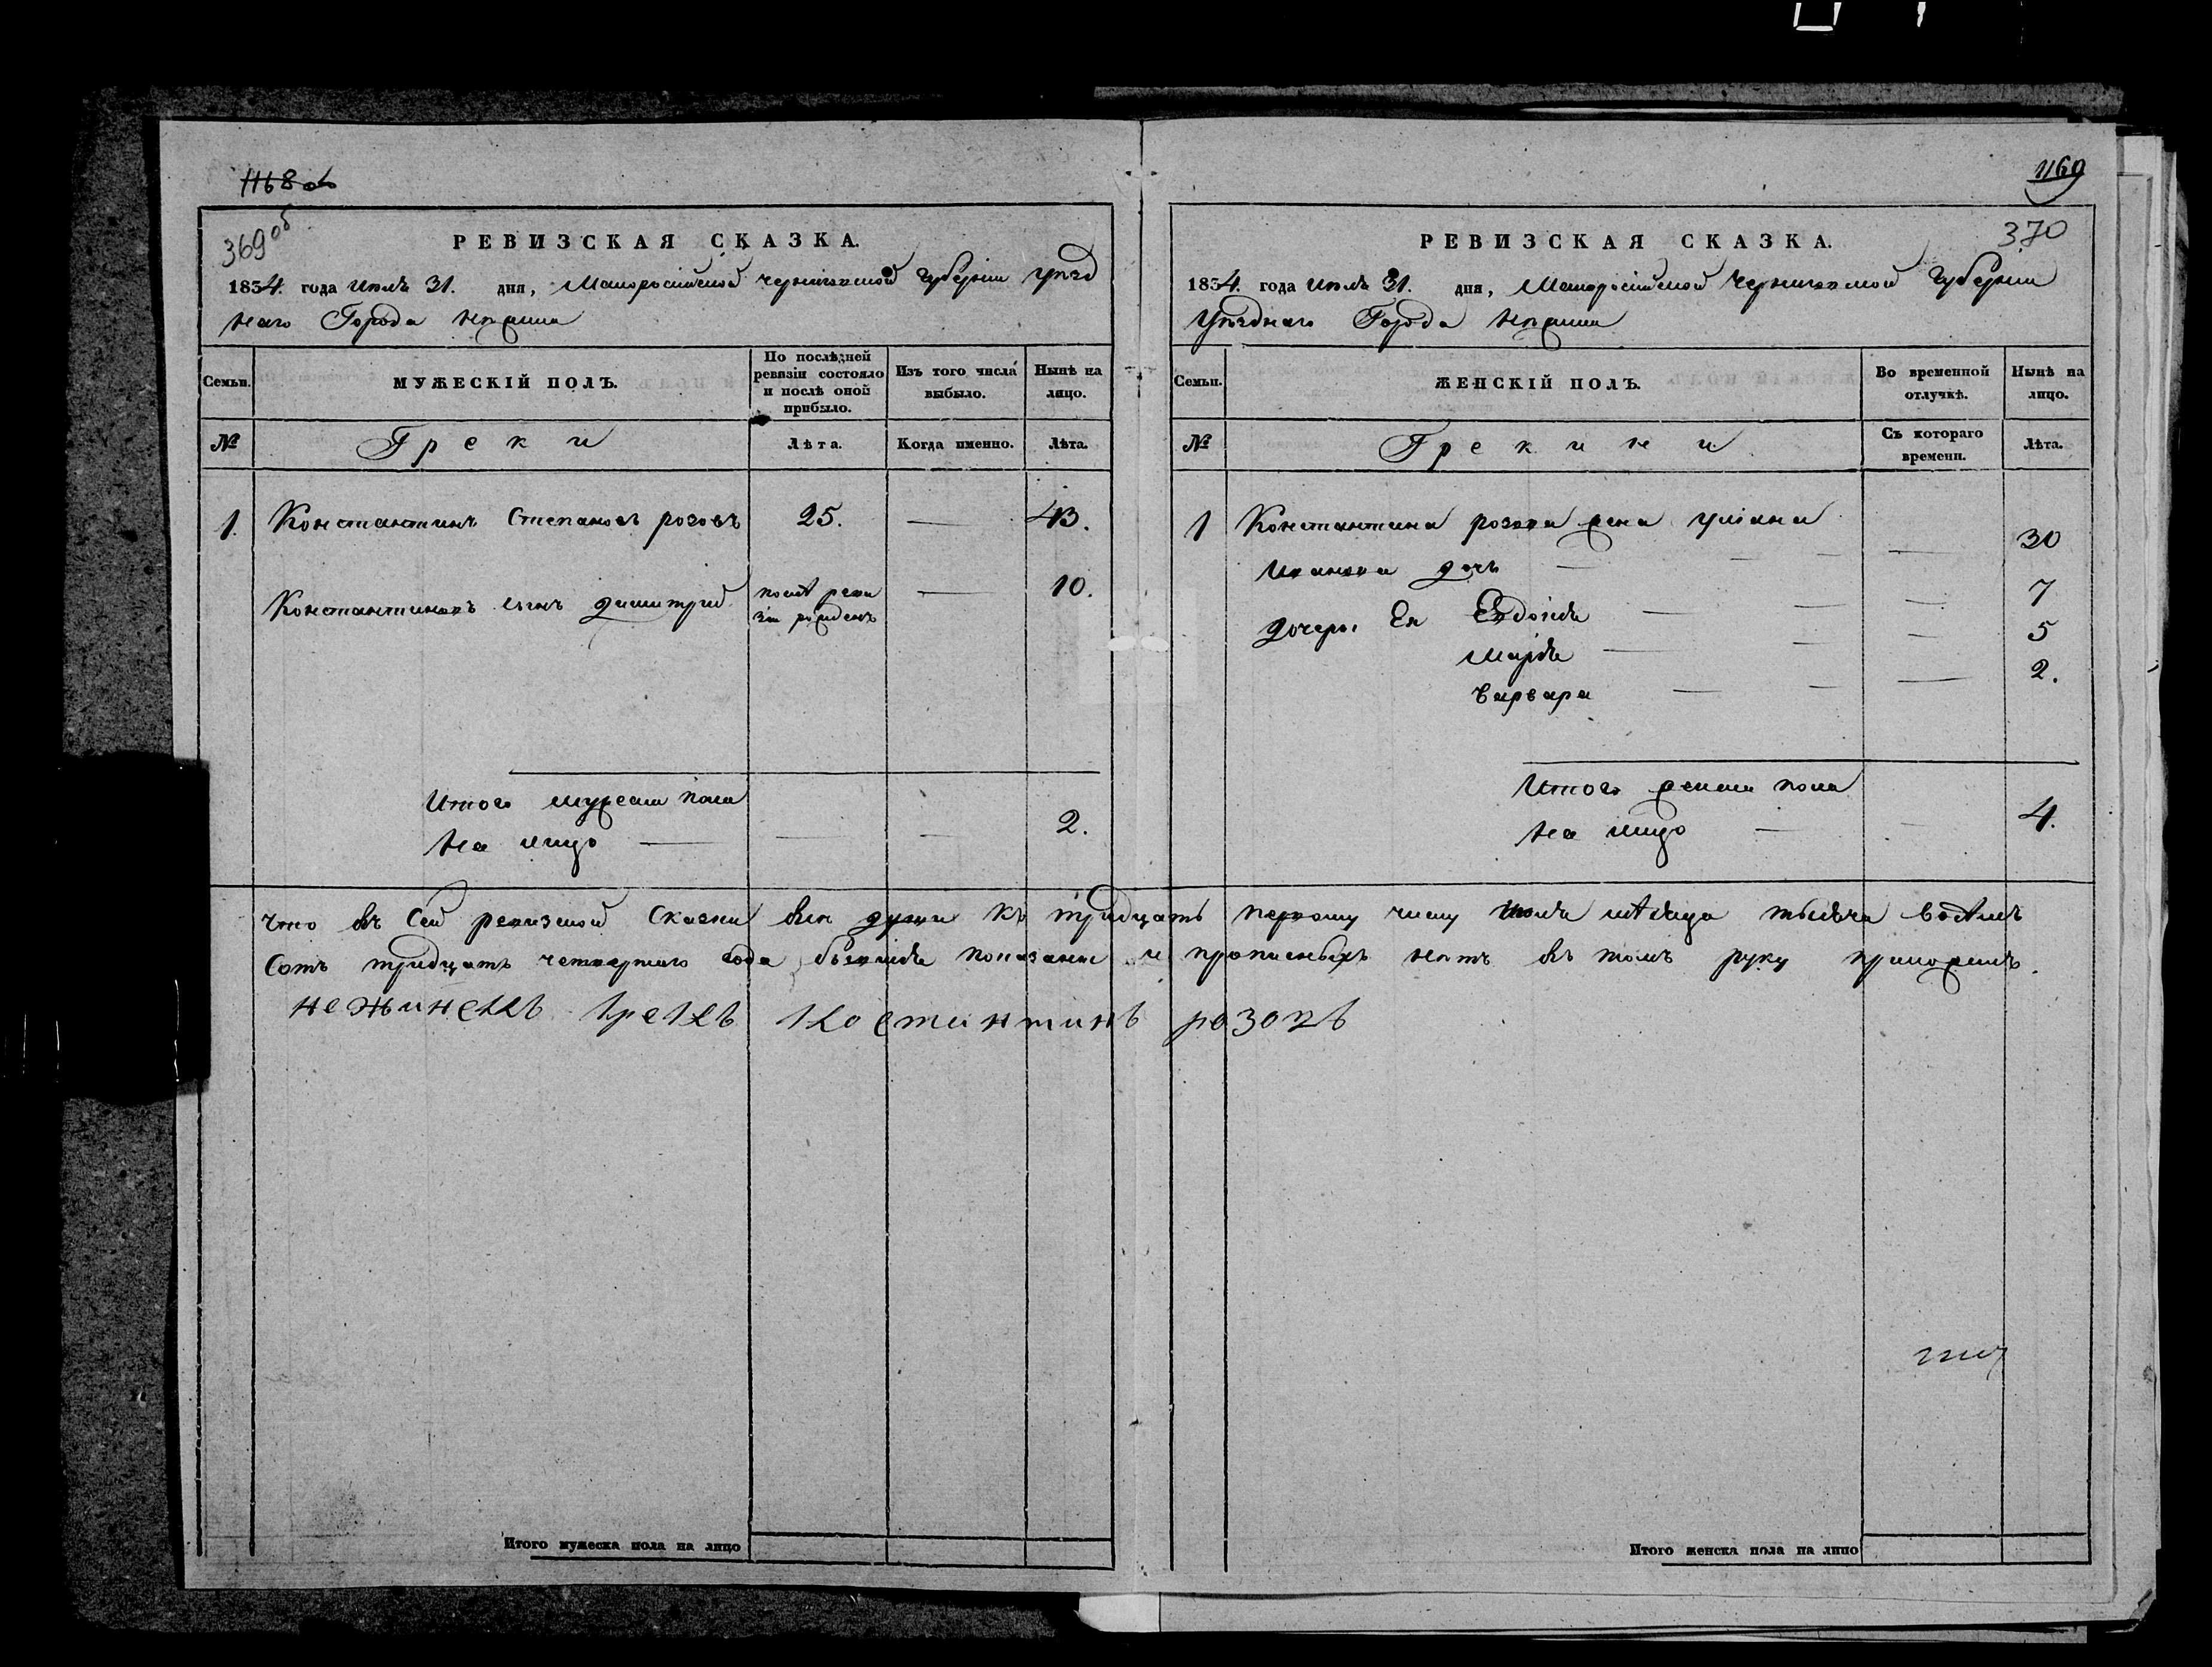 1168 об
369 об
РЕВИЗСКАЯ СКАЗКА.
1834. года Июля 31. дня, Малоросійской Черниговской Губерніи уезд
наго Города Нежина
Семьи.
МУЖЕСКІЙ ПОЛЪ.
По послѣдней ревизіи состояло и послѣ оной прибыло.
Изъ того числа выбыло.
Нынѣ на лицо.
№
Греки
Лѣта.
Когда именно.
Лѣта.
1. Константинъ Степановъ розовъ 25. — 43.
Константиновъ сынъ димитрій после реви зіи рожденъ — 10.
Итого мужеска пола
на лицо — — — 2.
1169
370
РЕВИЗСКАЯ СКАЗКА.
1834. года Июля 31. дня, Малоросійской Черниговской Губерніи
Уезднаго Города Нежина
Семьи.
ЖЕНСКІЙ ПОЛЪ.
Во временной отлучкѣ.
Нынѣ на лицо.
№
Грекини
Съ котораго времени.
Лѣта.
1 Константина розова жена уліана
Иванова дочь — — — — 30
дочери Ея Евдокія — — — 7
Марія — — — 5
Варвара — — — 2.
Итого женска пола
на лицо — — 4.
Что въ Сей ревизской Сказки все души къ тридцать первому числу Июля месяца тысяча восемъ
Сотъ тридцать четвертаго года бывшіе показаны и прописныхъ нетъ въ томъ руку приложилъ.
нежинецъ грекъ костантинъ розовъ
Итого мужеска пола на лицо
Итого женска пола на лицо